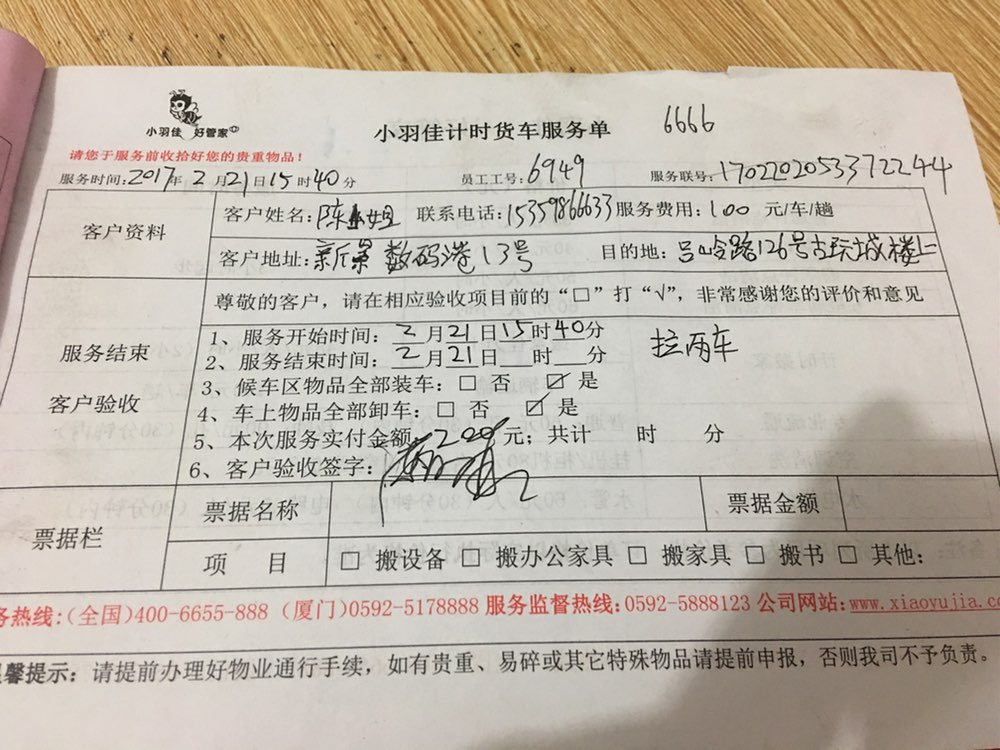 小羽佳 好管家
小羽佳计时货车服务单 6666
请您于服务前收拾好您的贵重物品！
服务时间：2017年2月21日15时40分 员工工号：6949 服务联号：1702202053372244
客户资料
客户姓名：陈小姐 联系电话：15359866633 服务费用：100 元/车/趟
客户地址：新景数码港13号 目的地：吕岭路126号古玩城楼上
服务结束
客户验收
尊敬的客户，请在相应验收项目前的“□”打“√”，非常感谢您的评价和意见
1、服务开始时间：2月21日15时40分 拉两车
2、服务结束时间：2月21日 时 分
3、候车区物品全部装车：□ 否 ☑ 是
4、车上物品全部卸车：□ 否 ☑ 是
5、本次服务实付金额：200元；共计 时 分
6、客户验收签字：
票据栏
票据名称 票据金额
项 目 □ 搬设备 □ 搬办公家具 □ 搬家具 □ 搬书 □ 其他：
务热线：(全国)400-6655-888 (厦门)0592-5178888 服务监督热线：0592-5888123 公司网站：www.xiaoyujia.co
馨提示：请提前办理好物业通行手续，如有贵重、易碎或其它特殊物品请提前申报，否则我司不予负责。